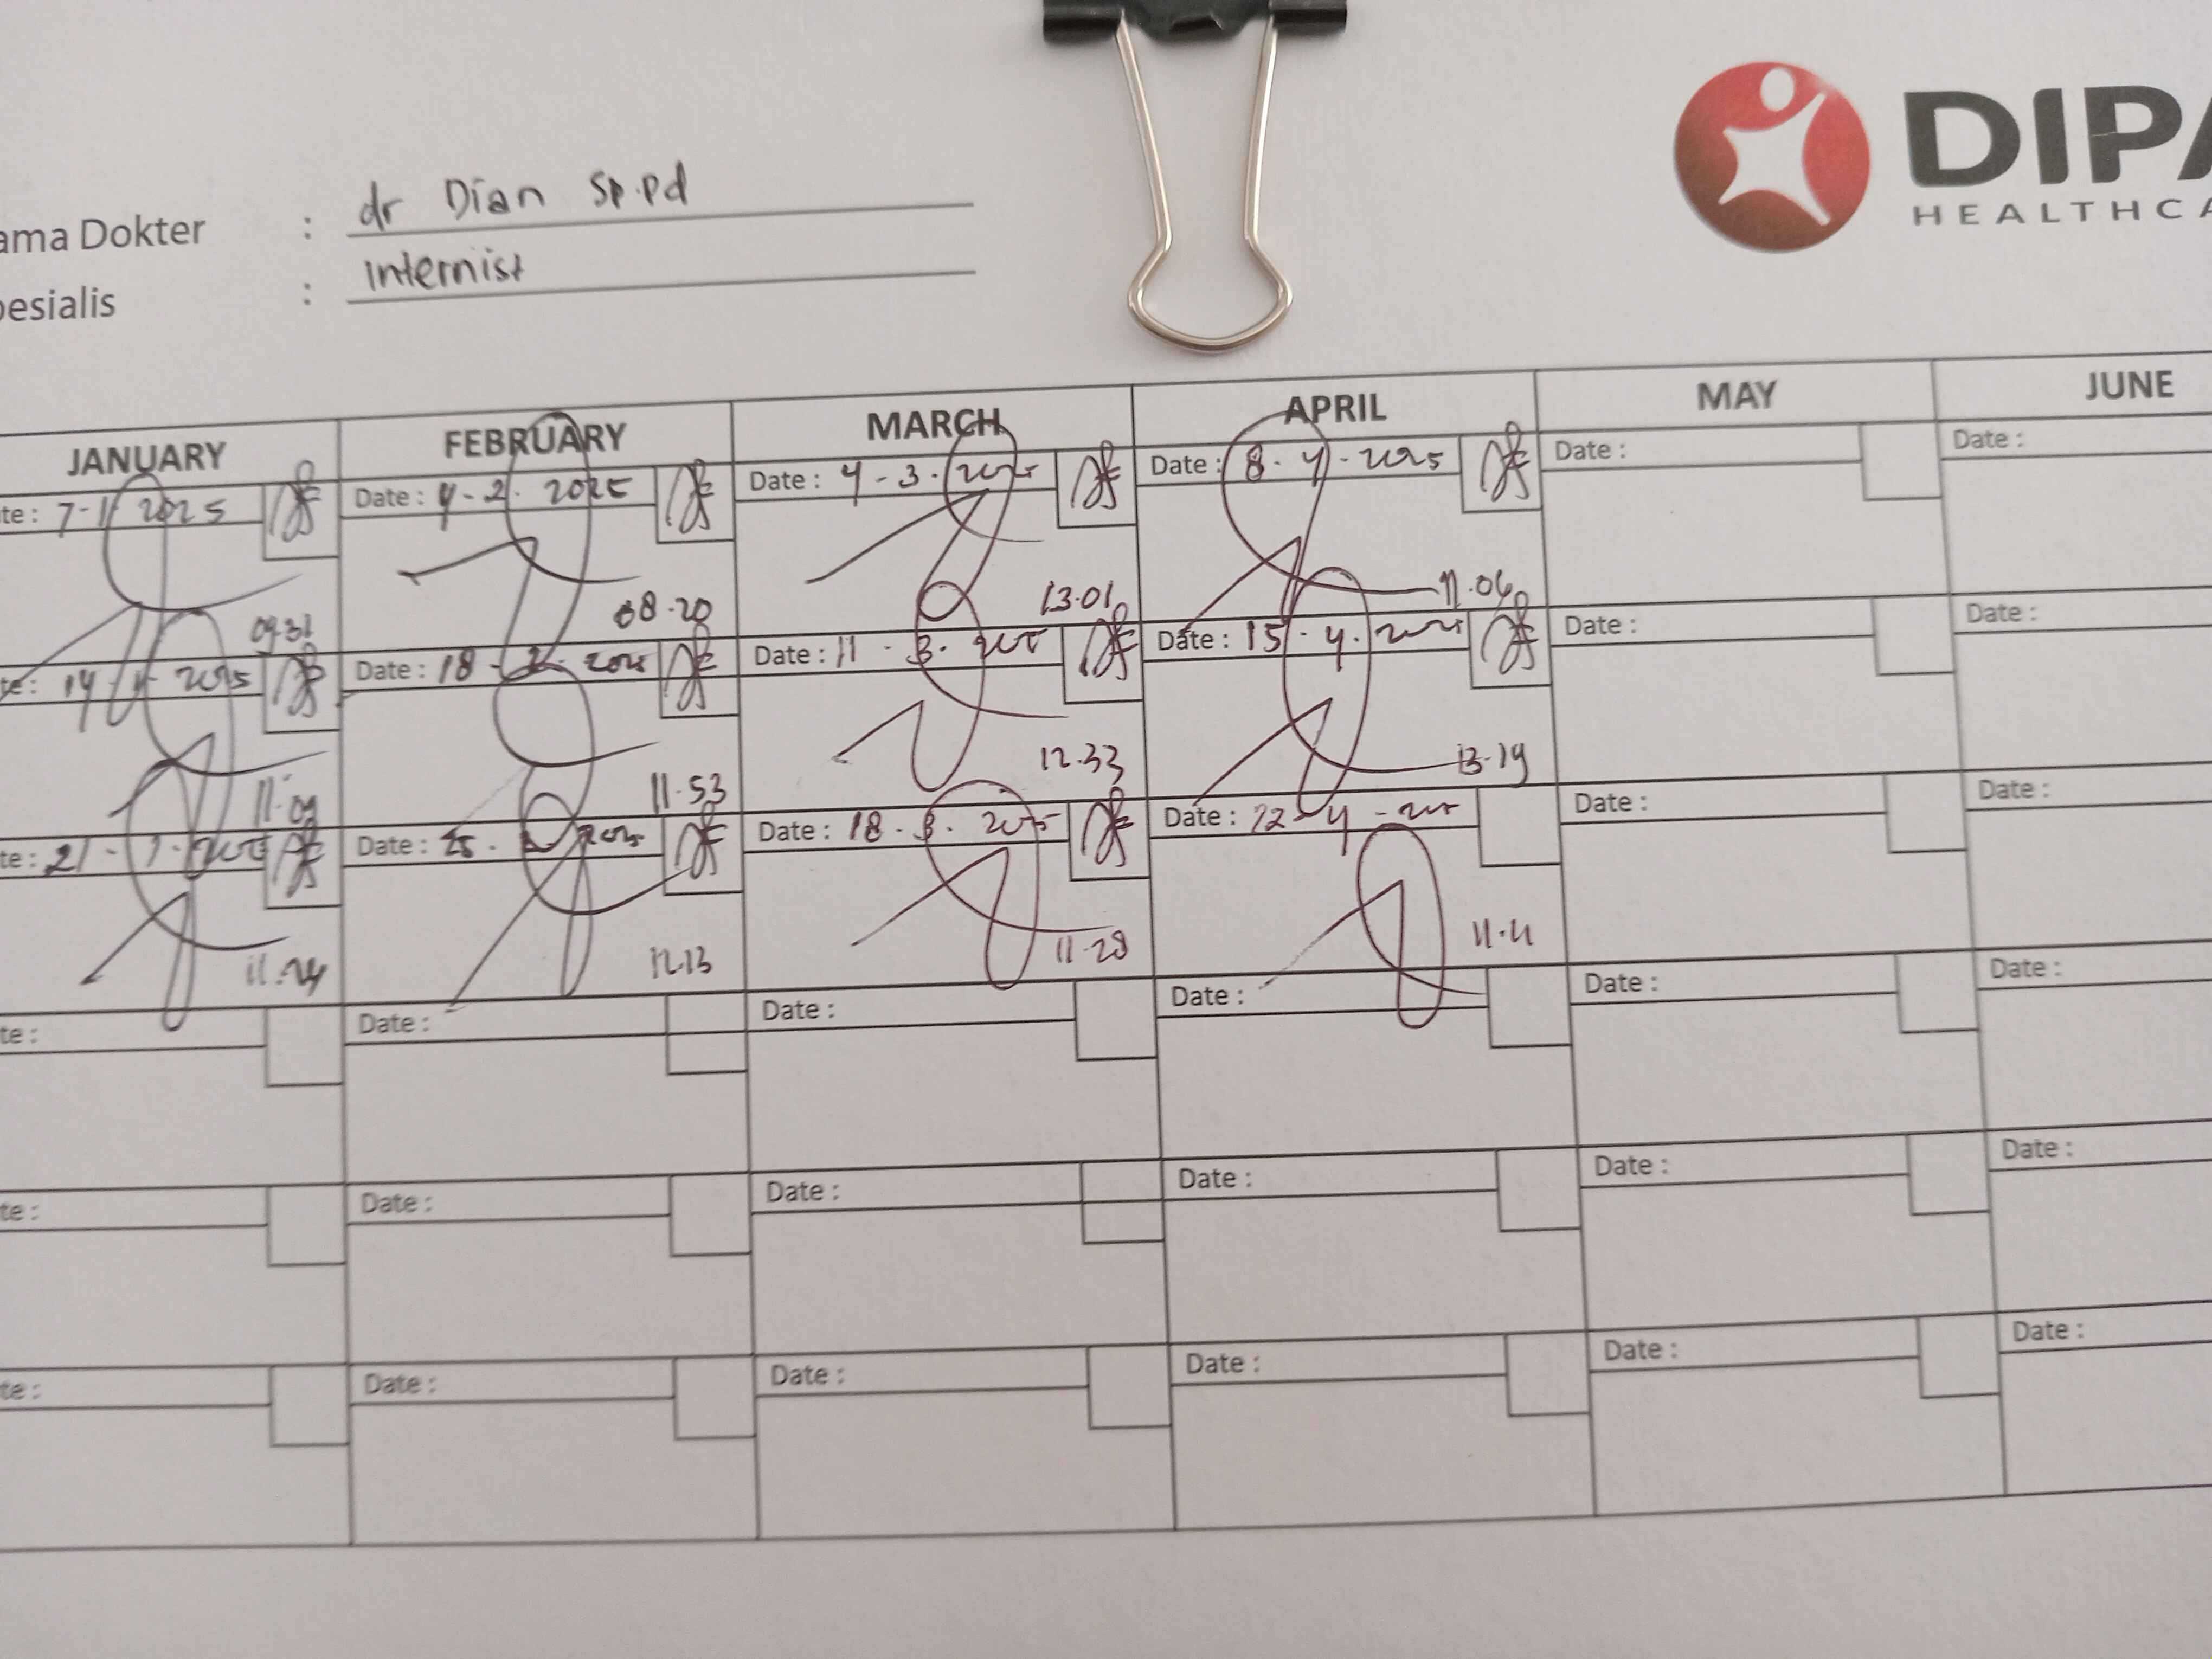 DIPA
HEALTHCA
ama Dokter : dr Dian Sp.pd
pesialis : Internist
JANUARY FEBRUARY MARCH APRIL MAY JUNE
te : 7-1 2025 Date : 4-2. 2025 Date : 4-3. Date : 8-4-2025 Date : Date :
09.31 08.20 13.01 11.06
te : 14 2025 Date : 18 Date : 11 - 3. Date : 15-4. Date : Date :
11.09 11.53 12.33 13.19
te : 21-1- Date : 25. Date : 18-3. 2025 Date : 22-4- Date : Date :
11.24 12.13 11.28 11.11
te : Date : Date : Date : Date : Date :
te : Date : Date : Date : Date : Date :
te : Date : Date : Date : Date : Date :